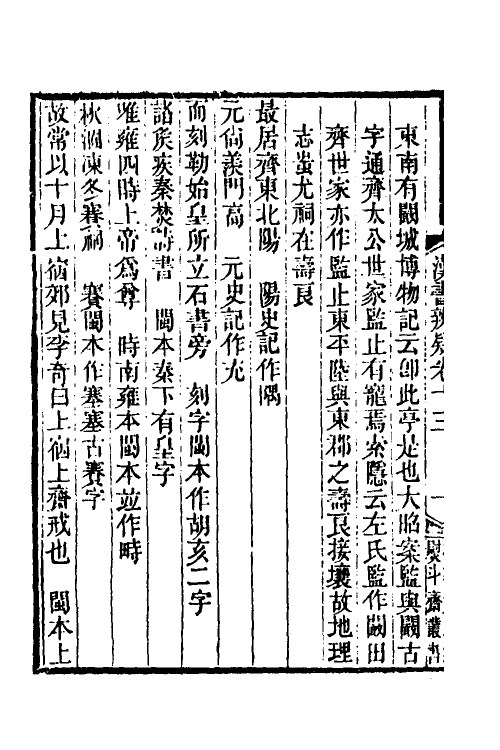 漢書辨疑卷十三　一　熨斗齋叢書
東南有闞城博物記云卽此亭是也大昭案監與闞古
字通齊太公世家監止有寵焉索隱云左氏監作闞田
齊世家亦作監止東平陸與東郡之壽良接壤故地理
志蚩尤祠在壽良
最居齊東北陽　陽史記作隅
元尙羨門高　元史記作充
而刻勒始皇所立石書旁　刻字閩本作胡亥二字
諸矦疾秦焚詩書　閩本秦下有皇字
唯雍四時上帝爲尊　時南雍本閩本並作畤
秋涸凍冬賽祠　賽閩本作塞塞古賽字
故常以十月上宿郊見李奇曰上宿上齋戒也　閩本上